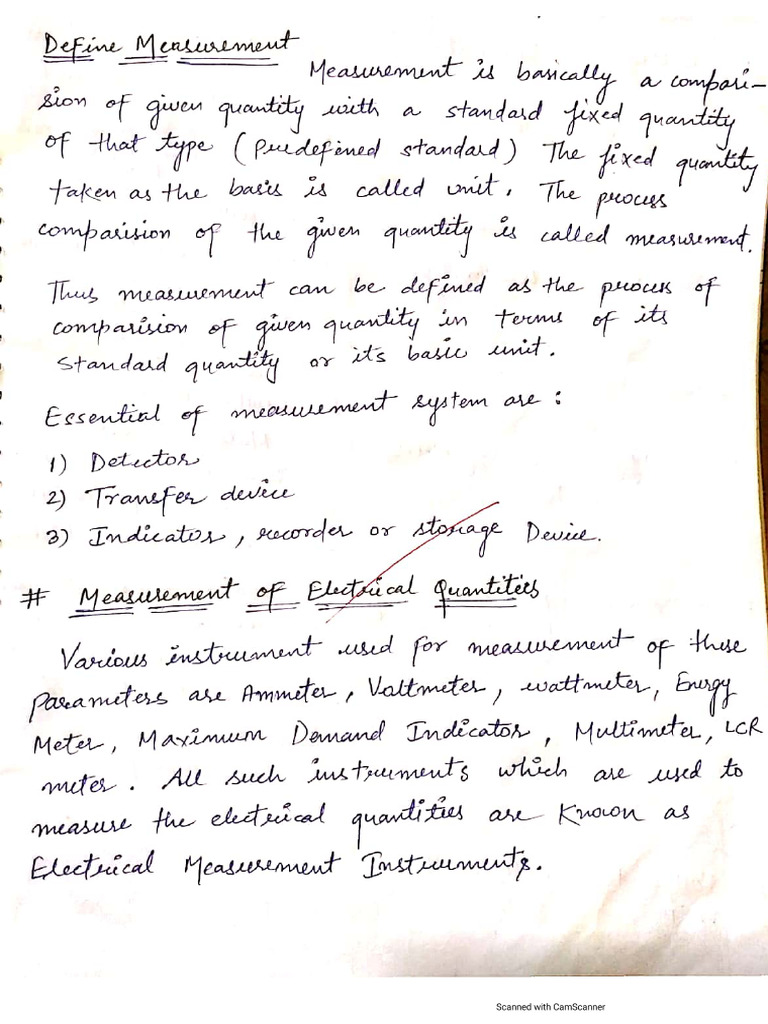 Define Measurement
Measurement is basically a compari-
sion of given quantity with a standard fixed quantity
of that type (Predefined standard) The fixed quantity
taken as the basis is called unit. The process
comparision of the given quantity is called measurement.
Thus measurement can be defined as the process of
comparision of given quantity in terms of its
standard quantity or it's basic unit.
Essential of measurement system are :
1) Detector
2) Transfer device
3) Indicator, recorder or storage Device.
# Measurement of Electrical Quantities
Various instrument used for measurement of these
parameters are Ammeter, Voltmeter, wattmeter, Energy
Meter, Maximum Demand Indicator, Multimeter, LCR
meter. All such instruments which are used to
measure the electrical quantities are known as
Electrical Measurement Instruments.
Scanned with CamScanner